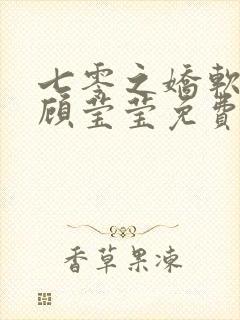 七零之嬌軟
顧瑩瑩免費
香草果凍